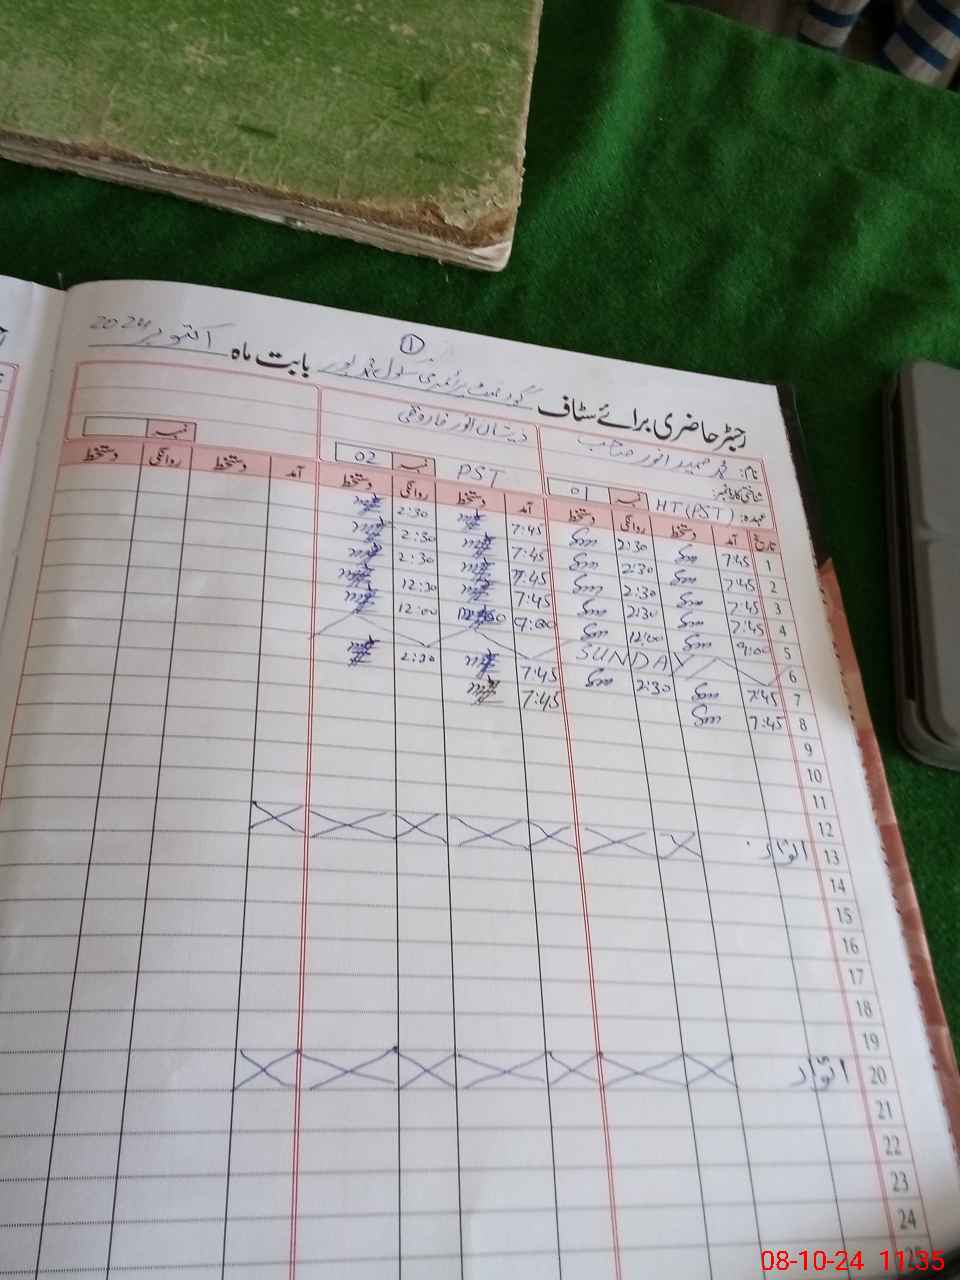 رجسٹر حاضری برائے سٹاف گورنمنٹ پرائمری سکول بابت ماہ اکتوبر 2024
1
نام: محمد حمید انور صاحب
ذیشان انور فاروقی
شناختی کارڈ نمبر:
عہدہ: HT (PST) نمبر 01
PST نمبر 02
نمبر
تاریخ آمد دستخط روانگی دستخط آمد دستخط روانگی دستخط آمد دستخط روانگی دستخط
1 7:45 2:30 7:45 2:30
2 7:45 2:30 7:45 2:30
3 7:45 2:30 7:45 2:30
4 7:45 2:30 7:45 12:30
5 9:00 12:00 9:00 12:00
6 SUNDAY
7 7:45 2:30 7:45 2:30
8 7:45 7:45
9
10
11
12
13 اتوار
14
15
16
17
18
19
20 اتوار
21
22
23
24
25
08-10-24 11:35